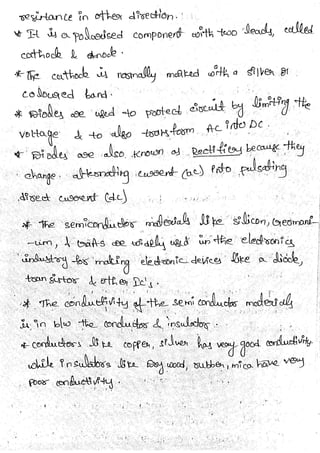 resistance in other direction.
* It is a polarised component with two leads, called
cathode & anode.
* The cathode is normally marked with a silver or
coloured band.
* Diodes are used to protect circuit by limiting the
voltage & to also transform AC into DC.
* Diodes are also known as Rectifiers because they
change alternating current (ac) into pulsating
direct current (dc)
* The semiconductor materials like silicon, Germani
-um, & are widely used in the electronics
industry for making electronic devices like a diode,
transistor & other Ic's.
* The conductivity of the semi conductor materials
is in b/w the conductor & insulator.
* conductors like copper, silver has very good conductivity
while insulators like Dry wood, rubber, mica have very
poor conductivity.